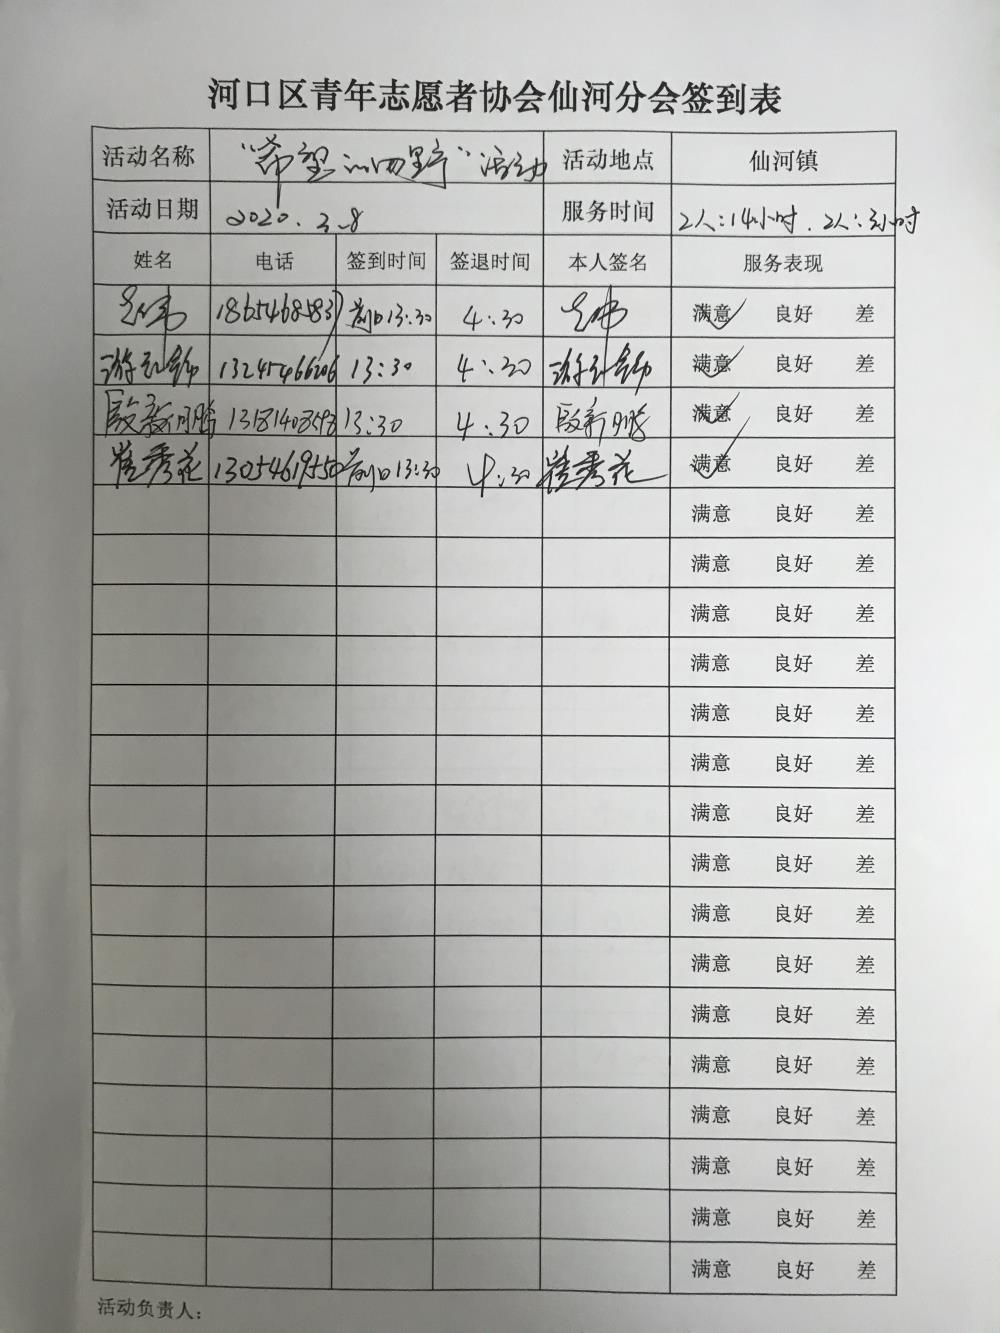 河口区青年志愿者协会仙河分会签到表
活动名称 "希望的田野"活动 活动地点 仙河镇
活动日期 2020.3.8 服务时间 2人:14小时.2人:3小时
姓名 电话 签到时间 签退时间 本人签名 服务表现
18654685837 前日13:30 4:30 满意 良好 差
13245466206 13:30 4:30 满意 良好 差
段新鹏 13181408598 13:30 4:30 段新鹏 满意 良好 差
崔秀花 13054619550 前日13:30 4:30 崔秀花 满意 良好 差
满意 良好 差
满意 良好 差
满意 良好 差
满意 良好 差
满意 良好 差
满意 良好 差
满意 良好 差
满意 良好 差
满意 良好 差
满意 良好 差
满意 良好 差
满意 良好 差
满意 良好 差
满意 良好 差
满意 良好 差
满意 良好 差
活动负责人: